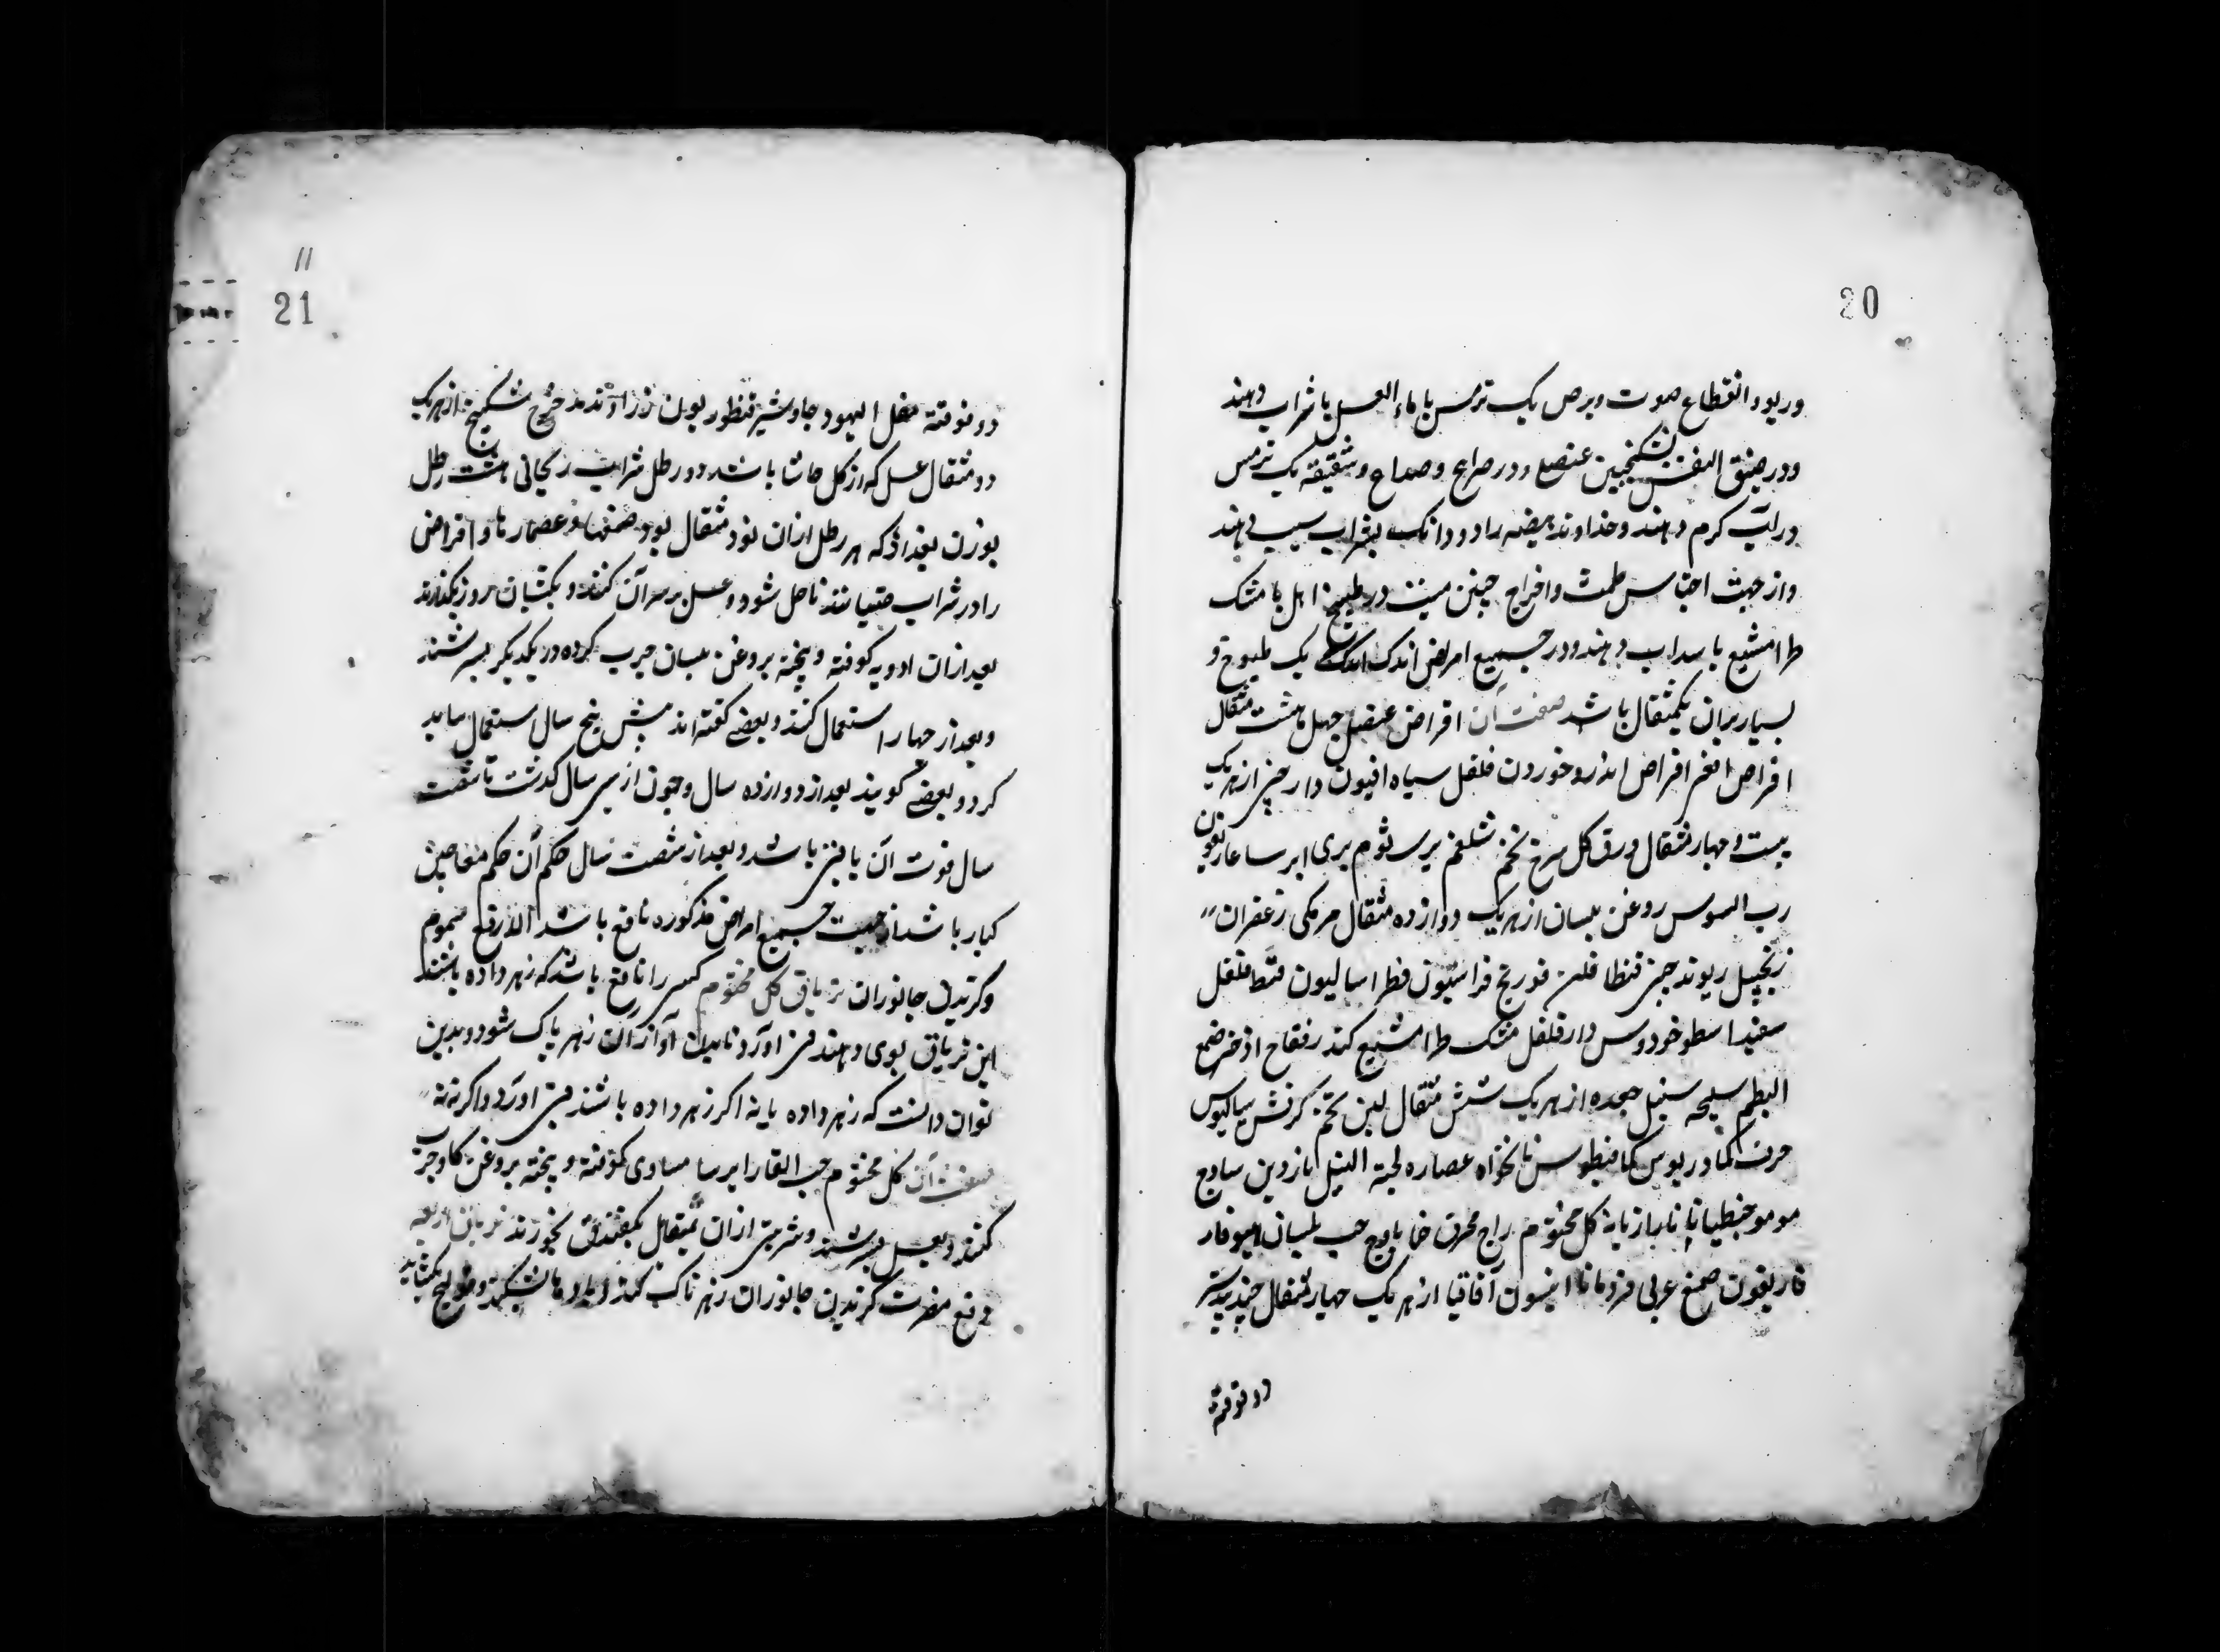 20
وربو و انقطاع صوت و برص یک ترمس با ماء العسل یا شراب دهند
ودر ضیق النفس سکنجبین عنصل ودر صرع و صداع و شقیقه یک ترمس
در آب کرم دهند وخداوند هیضه را دو دانک بشراب سیب دهند
واز جهت احتباس طمث و اخراج جنین میت در طبیخ ابهل با مشک
طرامشیع با سداب دهند ودر جمیع امراض اندک یک طسوج و
بسیار بران یکمثقال باشد صفت آن اقراص عنصل چهل هشت مثقال
اقراص افعی اقراص اندروخوردن فلفل سیاه افیون دارچینی از هریک
بیست و چهار مثقال ورق کل سرخ تخم شلغم بری ثوم بری ایرسا غاریقون
رب السوس روغن بلسان از هریک دوازده مثقال مرمکی زعفران
زنجبیل ریوند چینی فنطافلن فودنج فراسیون فطراسالیون قسط فلفل
سفید اسطوخودوس دارفلفل مشک طرامشیع کندر فقاح اذخر صمغ
البطم سلیخه سنبل جعده از هریک شش مثقال لبن تخم کرفس سیالیوس
حرف کمادریوس کمافیطوس نانخواه عصاره لحیة التیس ناردین ساذج
مو مو جنطیانا رازیانه کل مختوم زاج محرق حماما وج حب بلسان هیوفار
فاریقون صمغ عربی قردمانا انیسون آقاقیا از هریک چهار مثقال جندبیدستر
دو قوقته
11
21
دوقوقته مقل الیهود جاوشیر قنطوریون زراوند مدحرج سکبینج از هریک
دو مثقال عسل که از کل حاشا باشد دو رطل شراب ریحانی هشت رطل
بوزن بغدادی که هر رطل ازان نود مثقال بود صمغها و عصارها و اقراص
را در شراب خیسانند تا حل شود و عسل بر سر آن کنند و یکشبان روز بکذارند
بعد ازان ادویه کوفته و پخته بروغن بلسان چرب کرده در یکدیکر بسرشند
و بعد از چهار استعمال کنند و بعضی کفته اند پیش پنج سال استعمال باید
کرد و بعضی کویند بعد از دوازده سال و چون از سی سال کذشت تا شصت
سال قوت آن باقی باشد و بعد از شصت سال حکم آن حکم معاجین
کبار باشد از جهت جمیع امراض مذکوره نافع باشد الا دفع سموم
وکزیدن جانوران تریاق کل مختوم کسی را نافع باشد که زهر داده باشند
این تریاق بوی دهند قی آورد تا بدن او از آن زهر پاک شود وبدین
توان دانست که زهر داده یا نه اکر زهر داده باشند قی اورد واکرنه نه
صفت آن کل مختوم حب الغار ایرسا مساوی کوفته و پخته بروغن کاو چرب
کنند و بعسل بسرشند وشربتی ازان مثقال بکفندق بخورند تریاق اربعه
دفع مضرت کزیدن جانوران زهر ناک کند و بادها بشکند و قولنج بکشاید